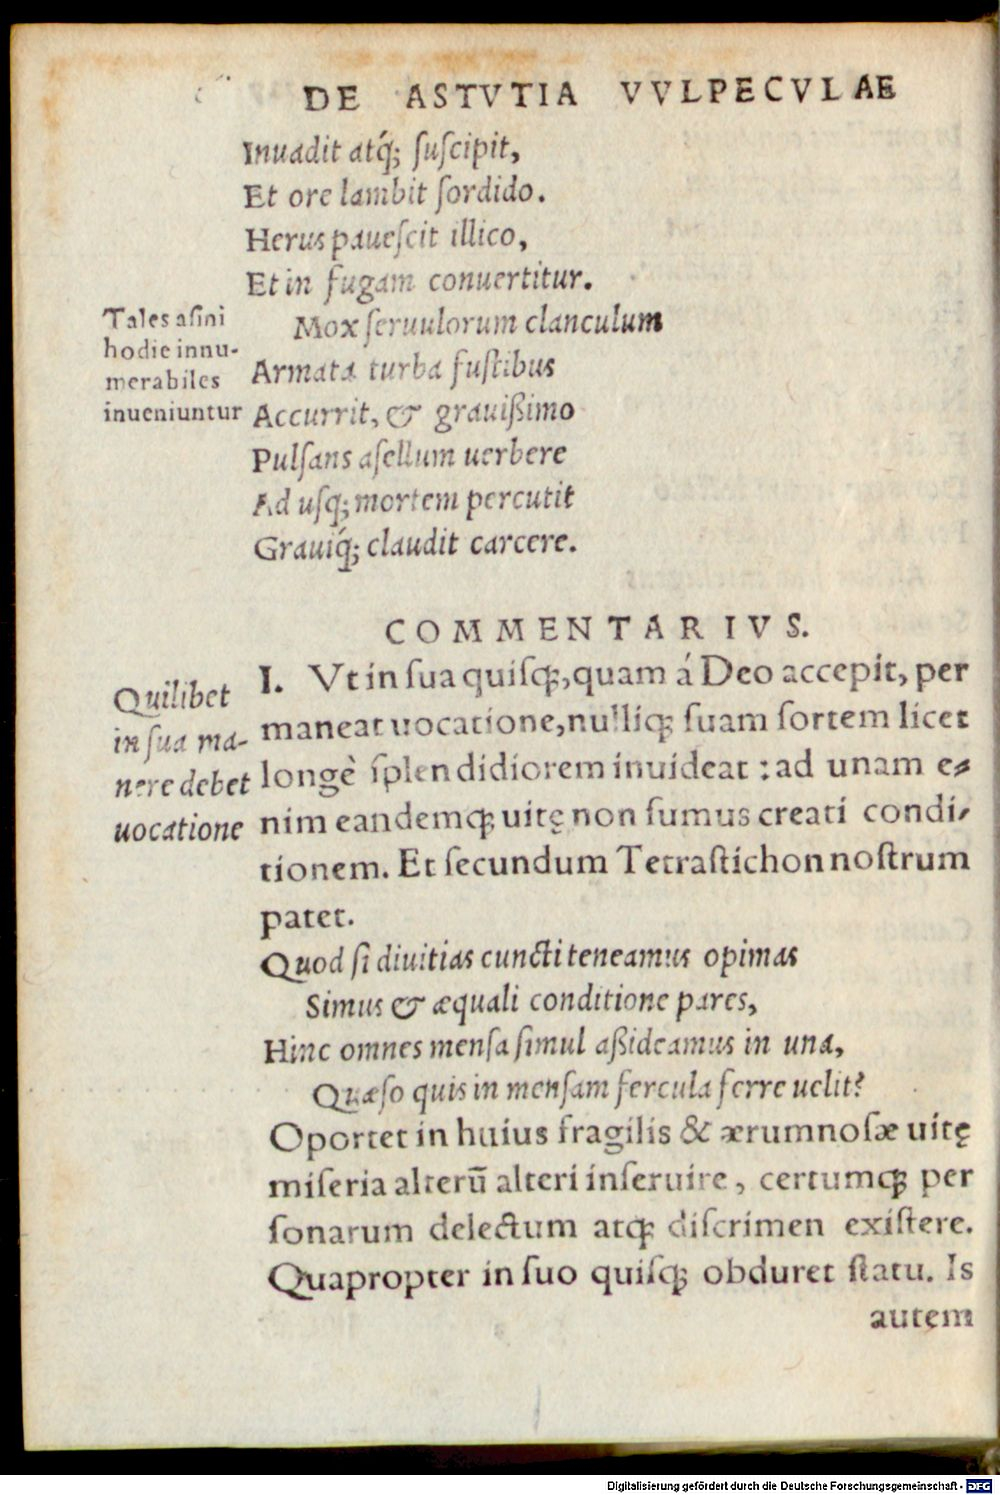 DE ASTVTIA VVLPECVLAE
Inuadit atq́; ſuſcipit,
Et ore lambit ſordido.
Herus paueſcit illico,
Et in fugam conuertitur.
Tales aſini
hodie innu-
merabiles
inueniuntur
Mox ſeruulorum clanculum
Armata turba fuſtibus
Accurrit, & grauißimo
Pulſans aſellum uerbere
Ad uſq; mortem percutit
Grauiq́; claudit carcere.
COMMENTARIVS.
Quilibet
in ſua ma-
nere debet
uocatione
I. Vt in ſua quiſq;, quam á Deo accepit, per
maneat uocatione, nulliq; ſuam ſortem licet
longè ſplendidiorem inuideat : ad unam e-
nim eandemq; uitę non ſumus creati condi-
tionem. Et ſecundum Tetraſtichon noſtrum
patet.
Quod ſi diuitias cuncti teneamus opimas
Simus & æquali conditione pares,
Hinc omnes menſa ſimul aßideamus in una,
Quæſo quis in menſam fercula ferre uelit?
Oportet in huius fragilis & ærumnoſæ uitę
miſeria alterū alteri inſeruire, certumq; per
ſonarum delectum atq; diſcrimen exiſtere.
Quapropter in ſuo quiſq; obduret ſtatu. Is
autem
Digitalisierung gefördert durch die Deutsche Forschungsgemeinschaft - DFG